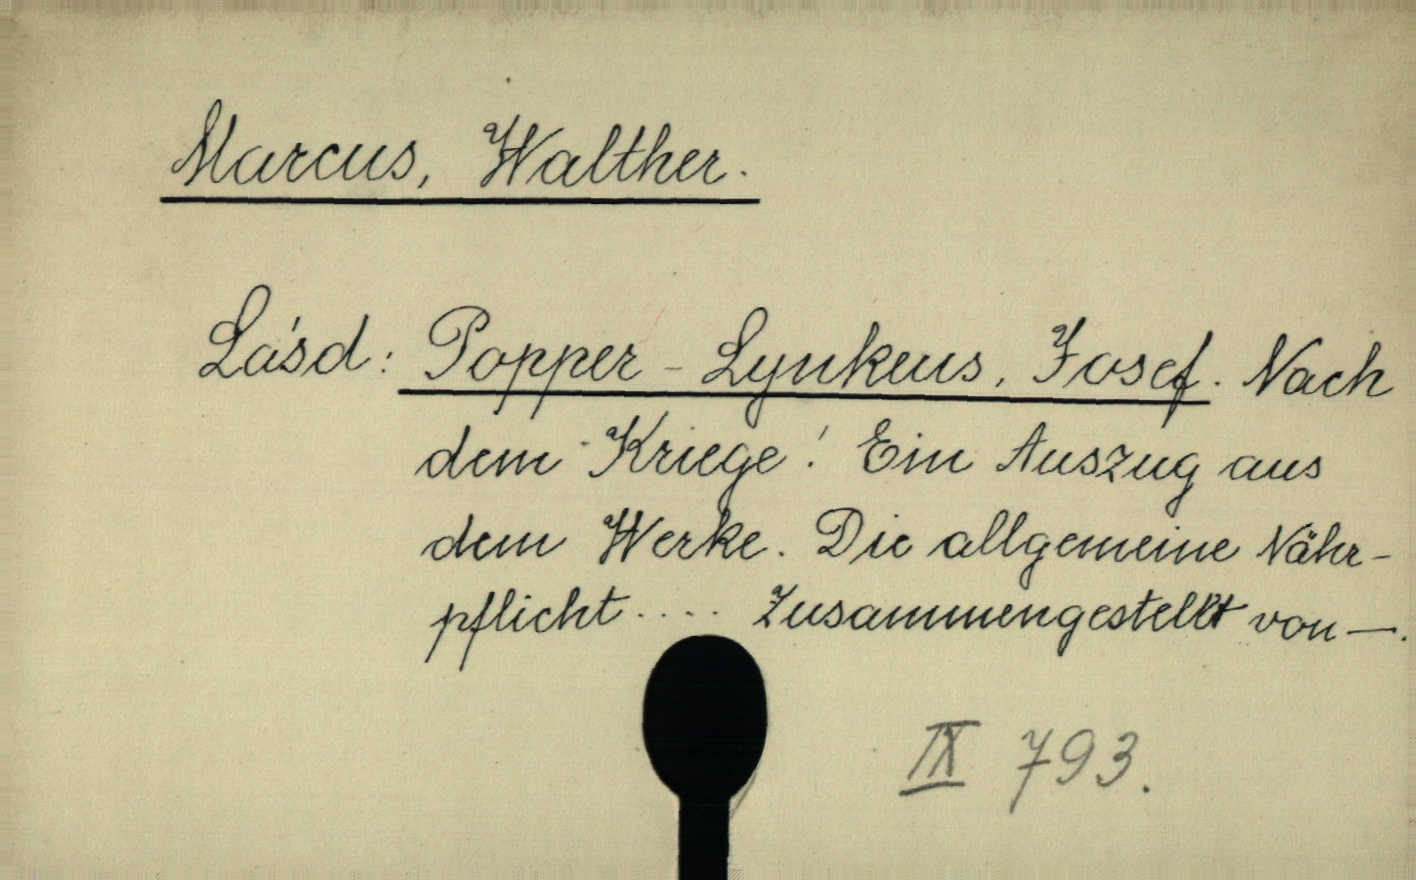 Marcus, Walther.
Lásd: Popper-Lynkeus, Josef. Nach
dem Kriege! Ein Auszug aus
dem Werke. Die allgemeine Nähr-
pflicht.... Zusammengestellt von —.
IX 793.